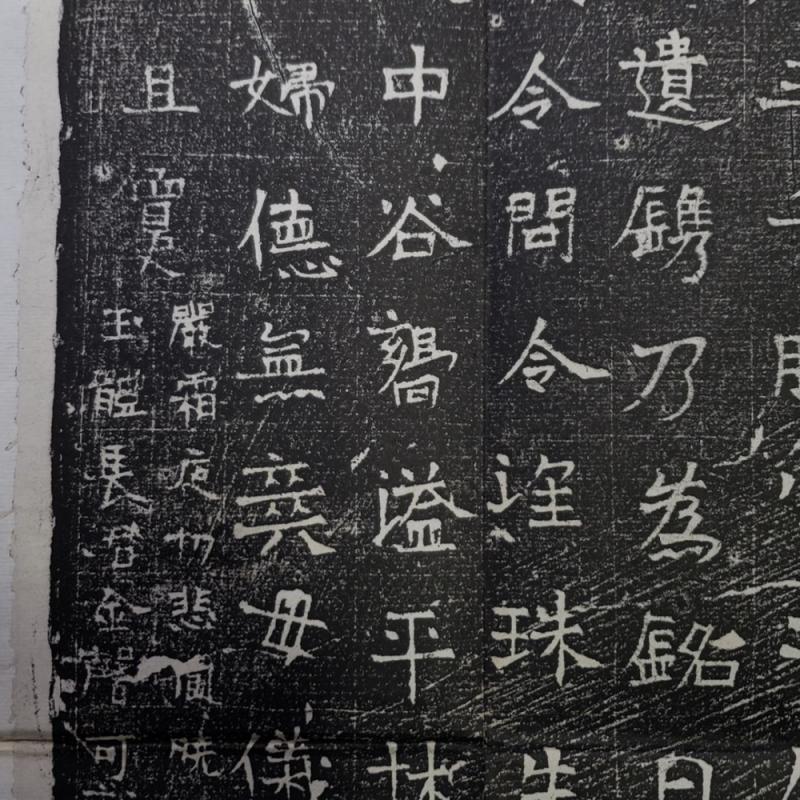 三
遺鐫乃為銘曰
令問令望珠生
中谷響溢平林
婦德無爽母儀
嚴霜夜切悲曉
且
玉體長金可